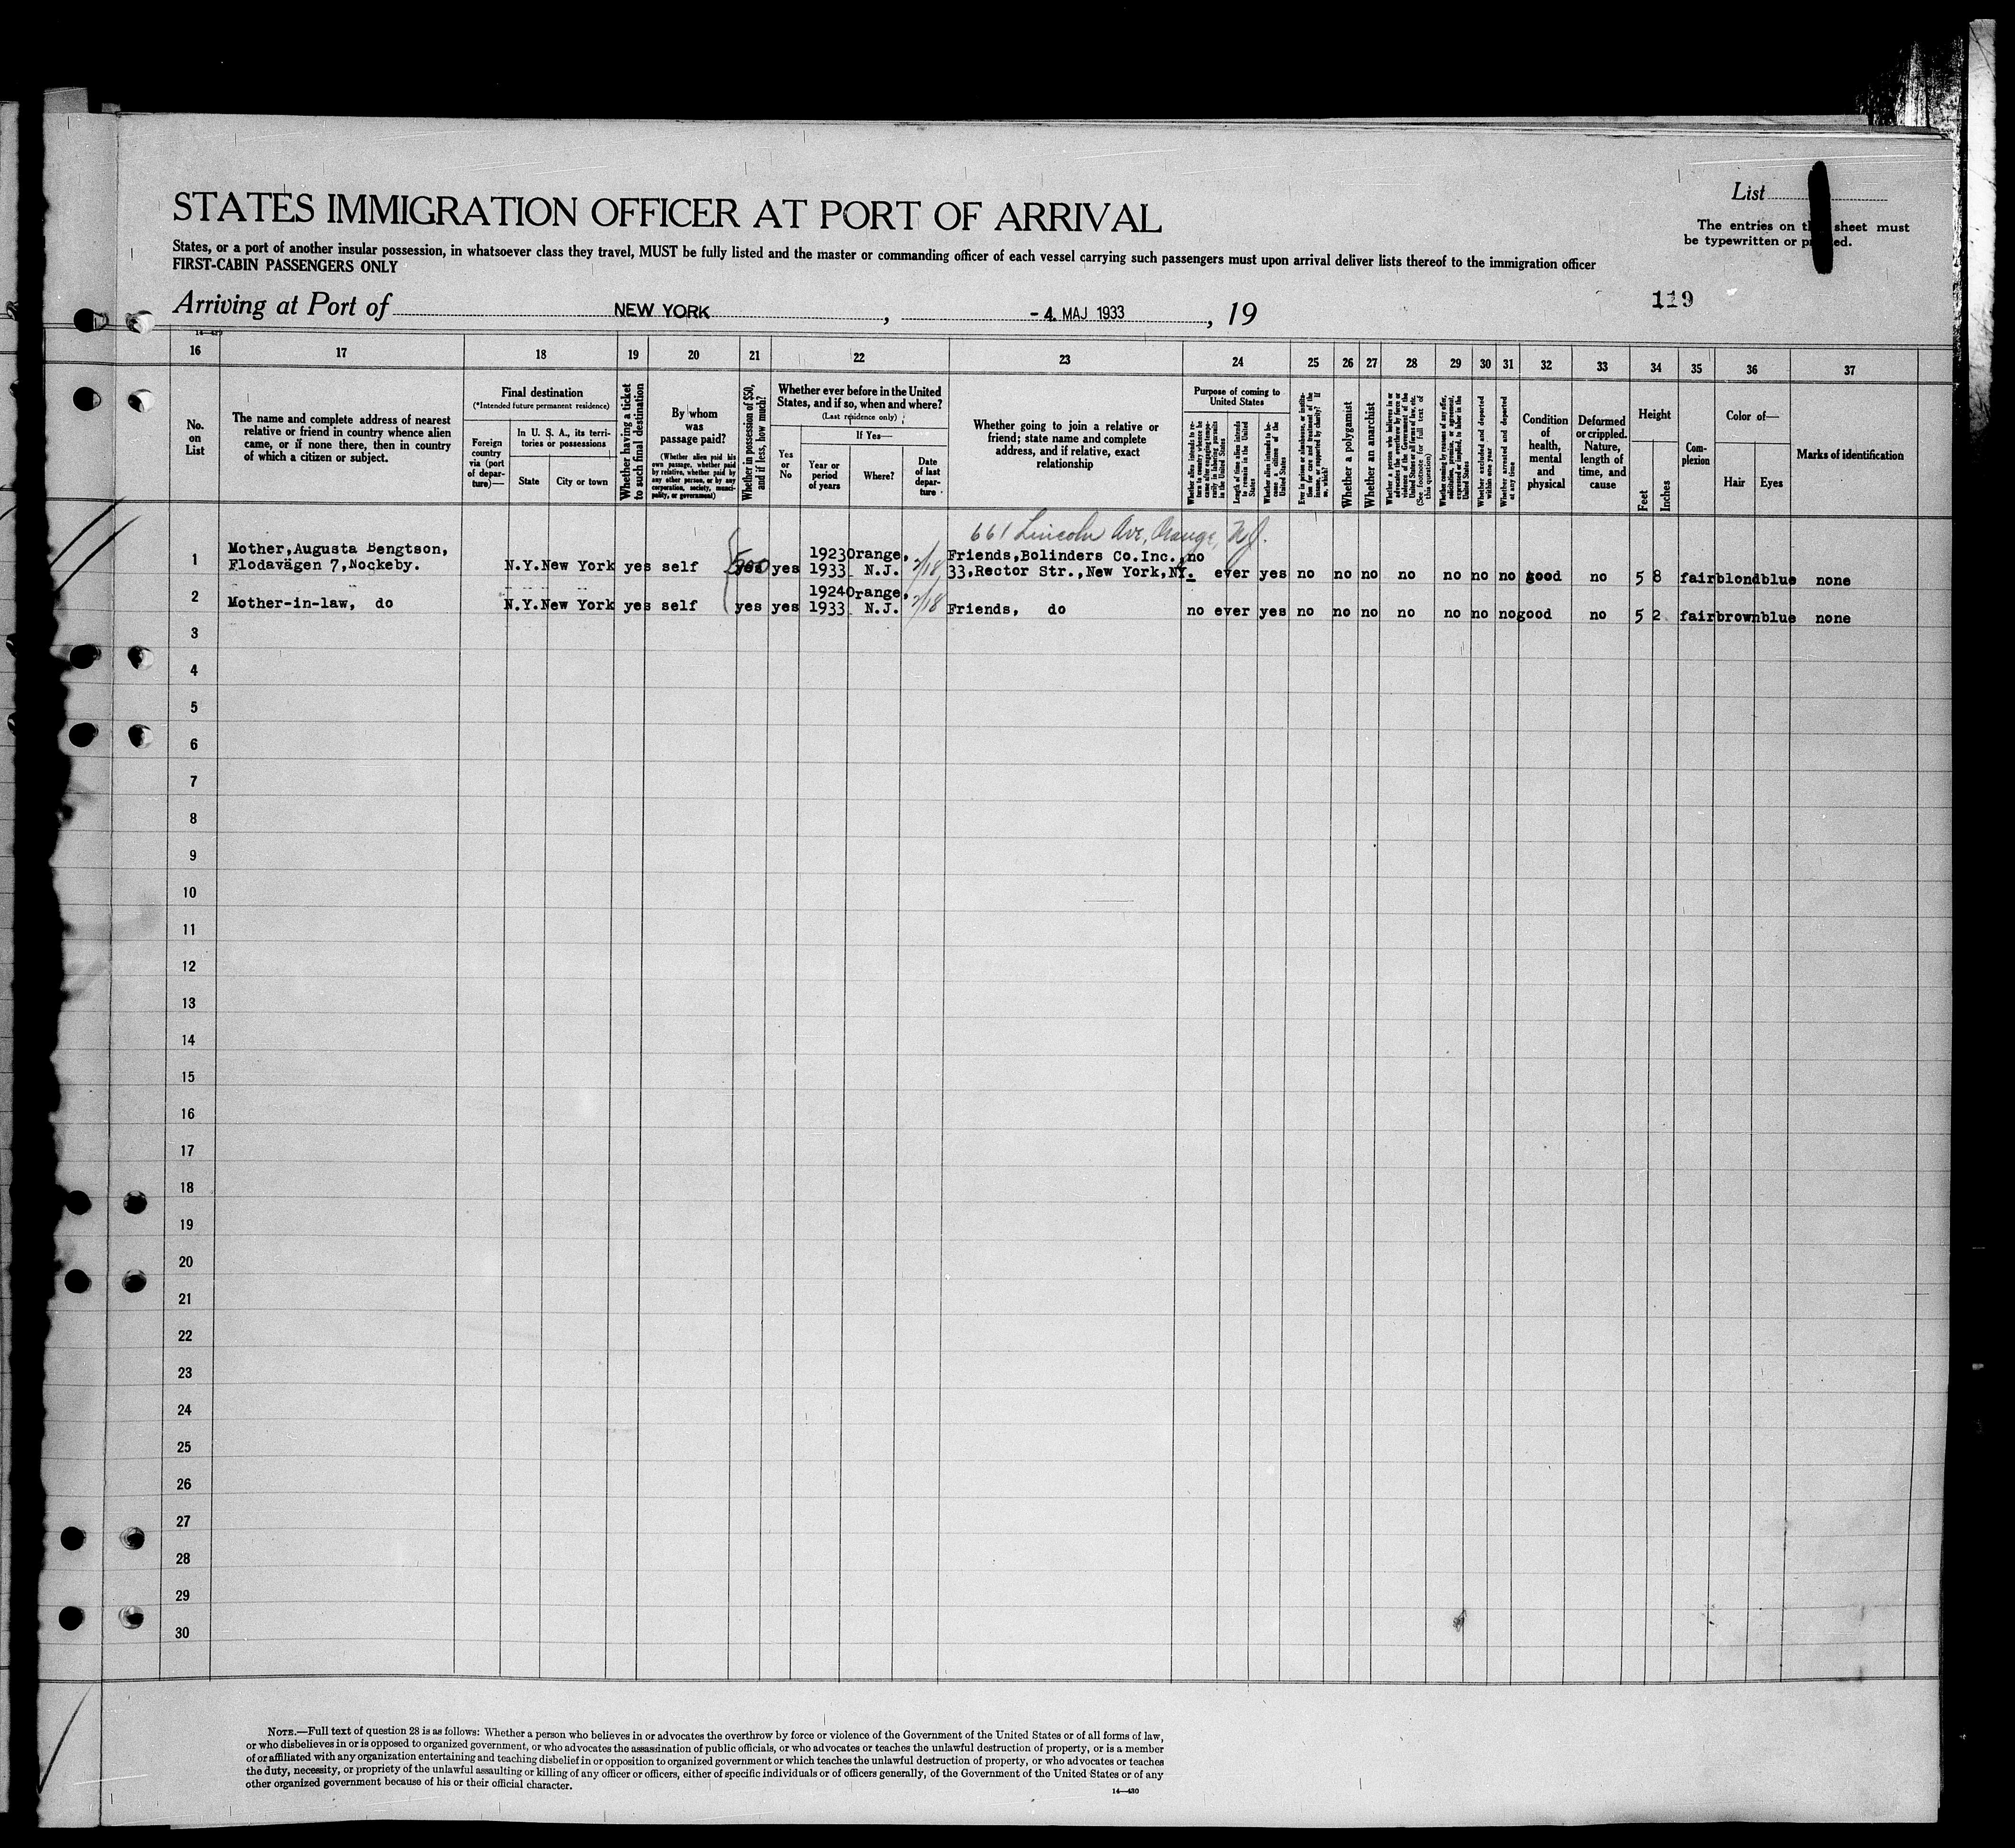 STATES IMMIGRATION OFFICER AT PORT OF ARRIVAL
List
The entries on sheet must
be typewritten or
States, or a port of another insular possession, in whatsoever class they travel, MUST be fully listed and the master or commanding officer of each vessel carrying such passengers must upon arrival deliver lists thereof to the immigration officer
FIRST-CABIN PASSENGERS ONLY
Arriving at Port of NEW YORK, - 4. MAJ 1933, 19
119
16 17 18 19 20 21 22 23 24 25 26 27 28 29 30 31 32 33 34 35 36 37
No. on List
The name and complete address of nearest
relative or friend in country whence alien
came, or if none there, then in country
of which a citizen or subject.
Final destination
(*Intended future permanent residence)
Foreign country via (port of departure)—
In U. S. A., its territories or possessions
State
City or town
Whether having a ticket
to such final destination
By whom
was
passage paid?
(Whether alien paid his
own passage, whether paid
by relative, whether paid by
any other person, or by any
corporation, society, munici-
pality, or government)
Whether in possession of $50,
and if less, how much?
Whether ever before in the United
States, and if so, when and where?
(Last residence only)
Yes
or
No
If Yes—
Year or
period
of years
Where?
Date
of last
depar-
ture
Whether going to join a relative or
friend; state name and complete
address, and if relative, exact
relationship
Purpose of coming to
United States
Whether alien intends to re-
turn to country whence he
came after engaging tempo-
rarily in laboring pursuits
in the United States
Length of time alien intends
to remain in the United
States
Whether alien intends to be-
come a citizen of the
United States
Ever in prison or almshouse, or institu-
tion for care and treatment of the
insane, or supported by charity? If
so, which?
Whether a polygamist
Whether an anarchist
Whether a person who believes in or
advocates the overthrow by force or
violence of the Government of the
United States or all forms of law, etc.
(See footnote for full text of
this question)
Whether coming by reasons of any offer,
solicitation, promise, or agreement,
expressed or implied, to labor in the
United States
Whether excluded and deported
within one year
Whether arrested and deported
at any time
Condition
of
health,
mental
and
physical
Deformed
or crippled.
Nature,
length of
time, and
cause
Height
Feet
Inches
Com-
plexion
Color of—
Hair
Eyes
Marks of identification
661 Lincoln Ave, Orange, N.J.
1 Mother,Augusta Bengtson, 1923 Orange, Friends,Bolinders Co.Inc., no
Flodavägen 7,Nockeby. N.Y. New York yes self 500 yes 1933 N.J. 2/18 33,Rector Str.,New York,NY. ever yes no no no no no no no good no 5 8 fair blond blue none
1924 Orange,
2 Mother-in-law, do N.Y. New York yes self yes yes 1933 N.J. 2/18 Friends, do no ever yes no no no no no no no good no 5 2 fair brown blue none
3
4
5
6
7
8
9
10
11
12
13
14
15
16
17
18
19
20
21
22
23
24
25
26
27
28
29
30
NOTE.—Full text of question 28 is as follows: Whether a person who believes in or advocates the overthrow by force or violence of the Government of the United States or of all forms of law,
or who disbelieves in or is opposed to organized government, or who advocates the assassination of public officials, or who advocates or teaches the unlawful destruction of property, or is a member
of or affiliated with any organization entertaining and teaching disbelief in or opposition to organized government or which teaches the unlawful destruction of property, or who advocates or teaches
the duty, necessity, or propriety of the unlawful assaulting or killing of any officer or officers, either of specific individuals or of officers generally, of the Government of the United States or of any
other organized government because of his or their official character.
14—430